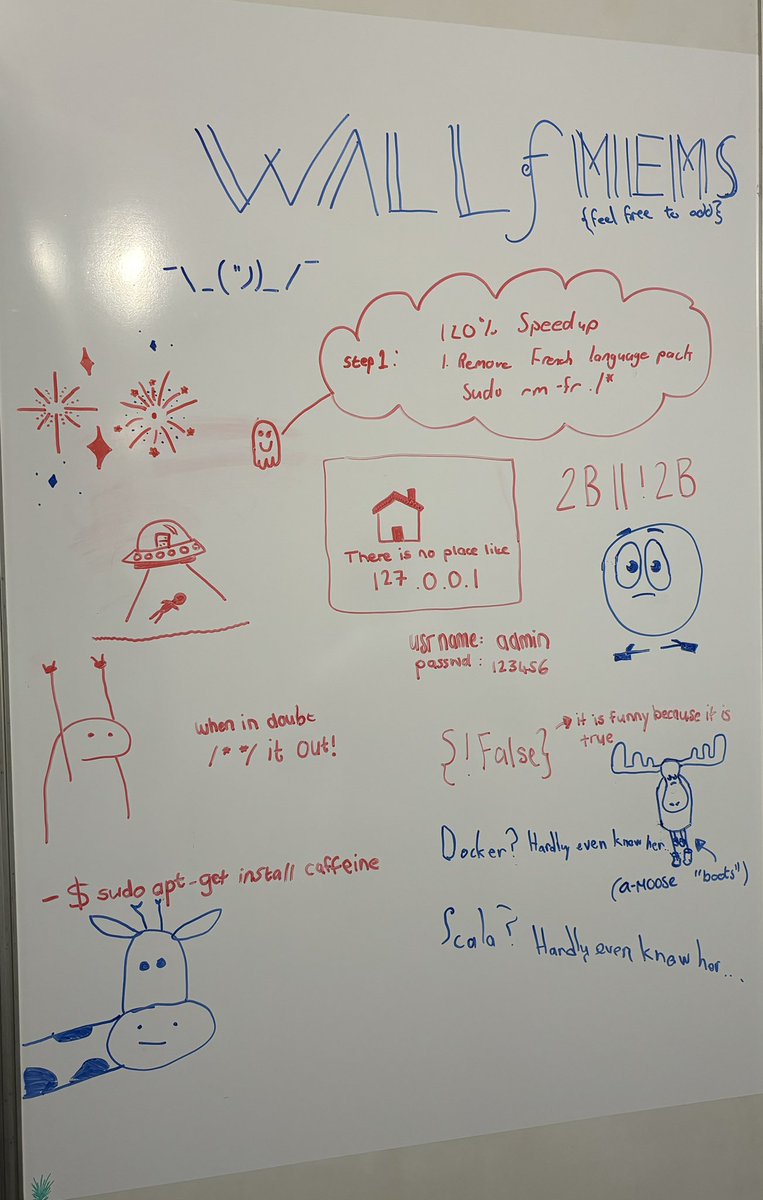 WALL of MEMS
{feel free to add}
¯\_(ツ)_/¯
120% Speedup
Step 1: 1. Remove French language pack
Sudo rm -fr ./*
2B||!2B
There is no place like
127.0.0.1
usrname: admin
passwd: 123456
when in doubt
/* */ it out!
{!False}
it is funny because it is
true
Docker? Hardly even know her..
(a-MOOSE "boots")
- $ sudo apt-get install caffeine
Scala? Hardly even know her...